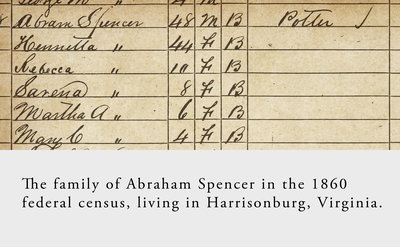 8 Abram Spencer 48 M B Potter /
Henrietta " 44 F B
Rebecca " 10 F B
Sarena " 8 F B
Martha A " 6 F B
Mary C " 4 F B
The family of Abraham Spencer in the 1860
federal census, living in Harrisonburg, Virginia.